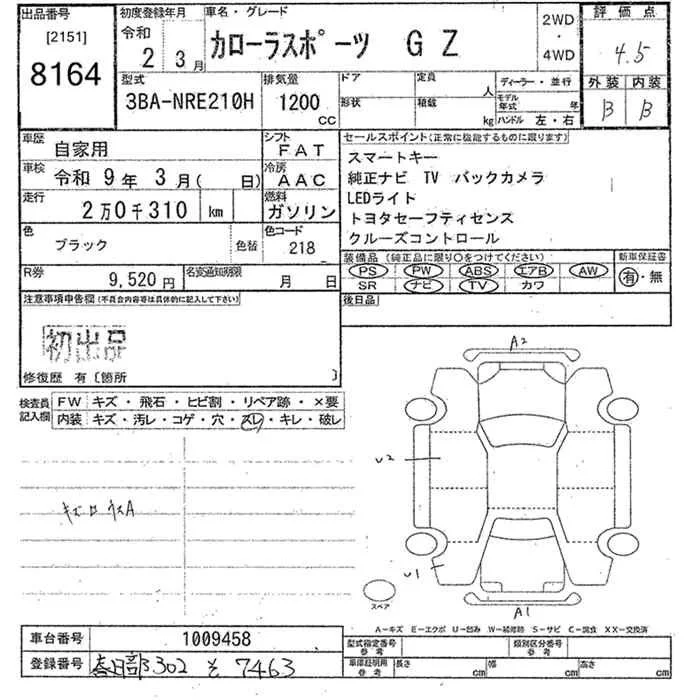 出品番号
[2151]
8164
初度登録年月
令和
2 3月
車名・グレード
カローラスポーツ G Z
2WD
・
4WD
評価点
4.5
型式
3BA-NRE210H
排気量
1200
cc
ドア
形状
定員
人
積載
kg
ディーラー・並行
モデル
年式
年
ハンドル 左・右
外装 内装
B B
車歴
自家用
シフト
FAT
車検
令和 9年 3月( 日)
冷房
AAC
走行
2万0千310 km
燃料
ガソリン
色
ブラック
色替
色コード
218
R券
9,520円
名変通知期限
月 日
セールスポイント(正常に機能するものに限ります)
スマートキー
純正ナビ TV バックカメラ
LEDライト
トヨタセーフティセンス
クルーズコントロール
装備品(純正品に限り○をつけてください)
PS PW ABS エアB AW
SR ナビ TV カワ
新車保証書
有・無
後日品
注意事項申告欄(不具合内容等は具体的に記入して下さい)
初出品
修復歴 有〔箇所 〕
検査員
記入欄
FW キズ・飛石・ヒビ割・リペア跡・×要
内装 キズ・汚レ・コゲ・穴・スレ・キレ・破レ
A2
U2
U1
A1
スペア
A-キズ E-エクボ U-凹み W-補修跡 S-サビ C-腐食 XX-交換済
車台番号
1009458
登録番号
春日部 302 そ 7463
型式指定番号
参考
類別区分番号
参考
車庫証明用
参考
長さ
cm
幅
cm
高さ
cm